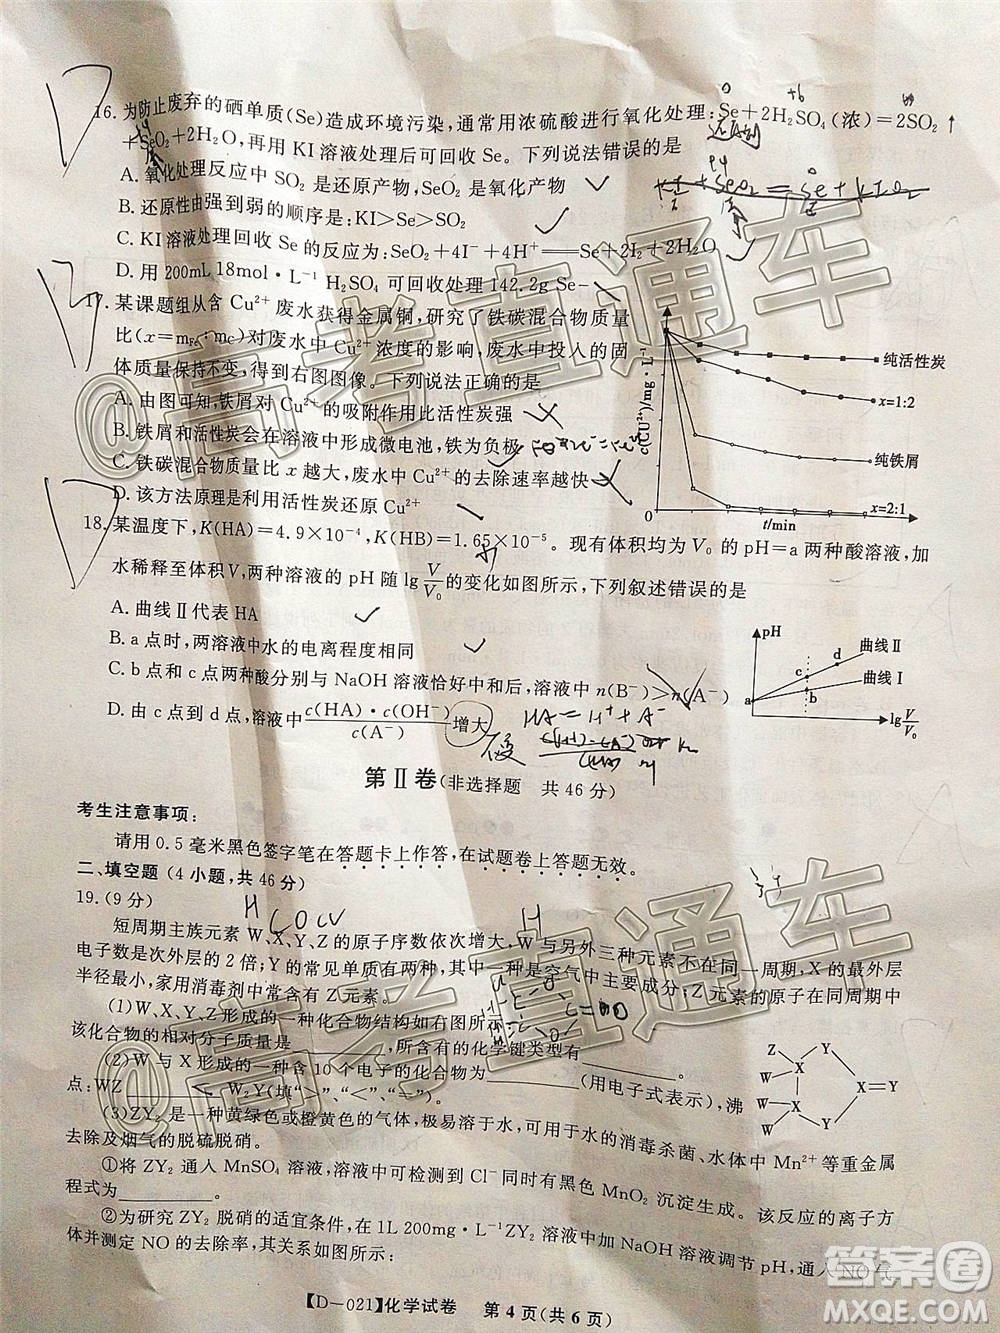 16. 为防止废弃的硒单质(Se)造成环境污染，通常用浓硫酸进行氧化处理：Se+2H₂SO₄(浓)=2SO₂↑
+SeO₂+2H₂O，再用 KI 溶液处理后可回收 Se。下列说法错误的是
A. 氧化处理反应中 SO₂ 是还原产物，SeO₂ 是氧化产物
B. 还原性由强到弱的顺序是：KI>Se>SO₂
C. KI 溶液处理回收 Se 的反应为：SeO₂+4I⁻+4H⁺══Se+2I₂+2H₂O
D. 用 200mL 18mol·L⁻¹ H₂SO₄ 可回收处理 142.2g Se
17. 某课题组从含 Cu²⁺ 废水获得金属铜，研究了铁碳混合物质量
比(x=m_Fe:m_C)对废水中 Cu²⁺ 浓度的影响，废水中投入的固
体质量保持不变，得到右图图像。下列说法正确的是
A. 由图可知，铁屑对 Cu²⁺ 的吸附作用比活性炭强
B. 铁屑和活性炭会在溶液中形成微电池，铁为负极
C. 铁碳混合物质量比 x 越大，废水中 Cu²⁺ 的去除速率越快
D. 该方法原理是利用活性炭还原 Cu²⁺
c(CU²⁺)/mg·L⁻¹
纯活性炭
x=1:2
纯铁屑
x=2:1
0
t/min
18. 某温度下，K(HA)=4.9×10⁻⁴，K(HB)=1.65×10⁻⁵。现有体积均为 V₀ 的 pH=a 两种酸溶液，加
水稀释至体积V，两种溶液的 pH 随 lg V/V₀ 的变化如图所示，下列叙述错误的是
A. 曲线Ⅱ代表 HA
B. a 点时，两溶液中水的电离程度相同
C. b 点和 c 点两种酸分别与 NaOH 溶液恰好中和后，溶液中 n(B⁻)>n(A⁻)
D. 由 c 点到 d 点，溶液中 c(HA)·c(OH⁻)/c(A⁻) 增大
pH
曲线Ⅱ
曲线Ⅰ
a
b
c
d
lg V/V₀
HA = H⁺ + A⁻
第Ⅱ卷(非选择题 共 46 分)
考生注意事项：
请用 0.5 毫米黑色签字笔在答题卡上作答，在试题卷上答题无效。
二、填空题(4 小题，共 46 分)
19. (9 分)
H C O Cl
短周期主族元素 W、X、Y、Z 的原子序数依次增大，W 与另外三种元素不在同一周期，X 的最外层
电子数是次外层的 2 倍；Y 的常见单质有两种，其中一种是空气中主要成分；Z 元素的原子在同周期中
半径最大，家用消毒剂中常含有 Z 元素。
(1)W、X、Y、Z 形成的一种化合物结构如右图所示，
该化合物的相对分子质量是________，所含有的化学键类型有________。
(2)W 与 X 形成的一种含 10 个电子的化合物为________(用电子式表示)，沸
点：WZ ________ W₂Y(填“>”、“<”、“=”)。
Z
W
W
W
X
X
Y
Y
X=Y
(3)ZY₂ 是一种黄绿色或橙黄色的气体，极易溶于水，可用于水的消毒杀菌、水体中 Mn²⁺ 等重金属
去除及烟气的脱硫脱硝。
①将 ZY₂ 通入 MnSO₄ 溶液，溶液中可检测到 Cl⁻ 同时有黑色 MnO₂ 沉淀生成。该反应的离子方
程式为________。
②为研究 ZY₂ 脱硝的适宜条件，在 1L 200mg·L⁻¹ ZY₂ 溶液中加 NaOH 溶液调节 pH，通入 NO 气
体并测定 NO 的去除率，其关系如图所示：
【D-021】化学试卷 第 4 页(共 6 页)
@高考直通车
@高考直通车
答案圈
MXQE.COM